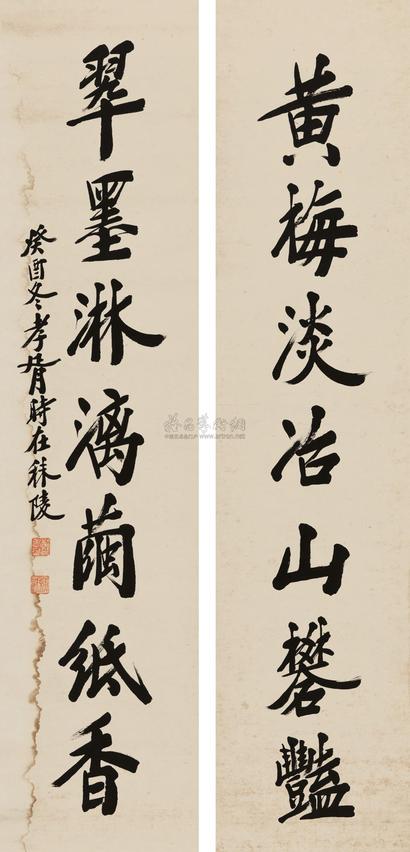 黄梅淡冶山礬豔
翠墨淋漓繭紙香
癸酉冬孝胥時在秣陵
雅昌藝術網
www.artron.net